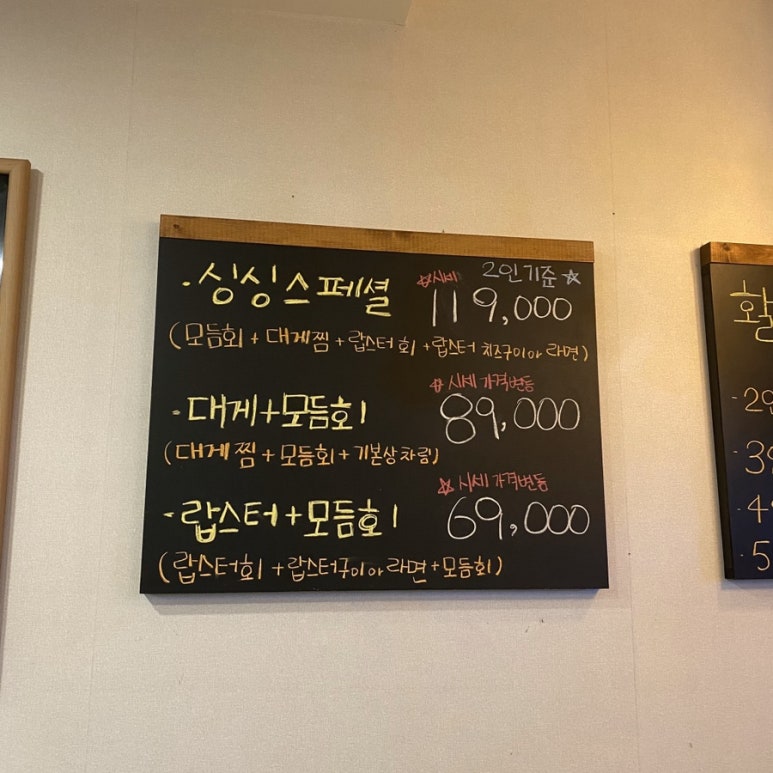 ☆시세 2인기준☆
·싱싱스페셜 119,000
(모듬회+대게찜+랍스터회+랍스터 치즈구이 or 라면)
☆시세 가격변동
·대게+모듬회 89,000
(대게찜+모듬회+기본상차림)
☆시세 가격변동
·랍스터+모듬회 69,000
(랍스터회+랍스터구이 or 라면+모듬회)